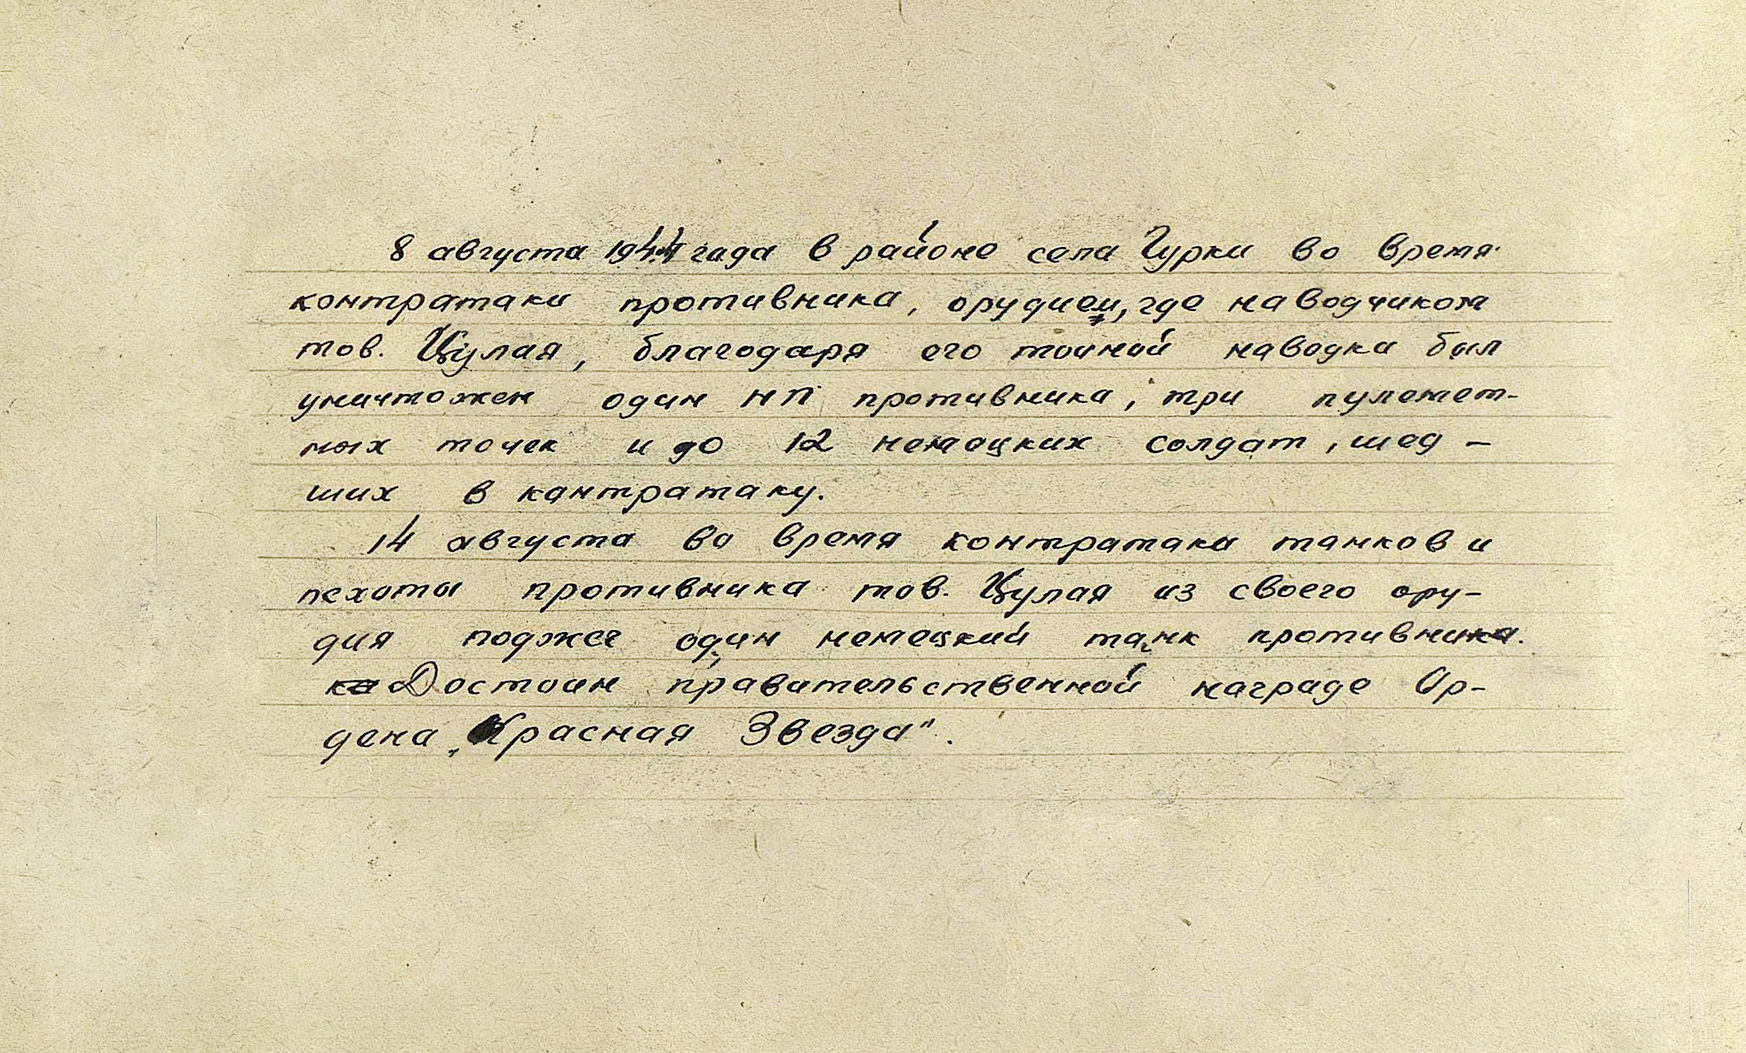 8 августа 1944 года в районе села Гурки во время
контратаки противника, орудием, где наводчиком
тов. Цулая, благодаря его точной наводки был
уничтожен один НП противника, три пулемет-
ных точек и до 12 немецких солдат, шед-
ших в контратаку.
14 августа во время контратаки танков и
пехоты противника тов. Цулая из своего ору-
дия поджег один немецкий танк противника.
Достоин правительственной награде Ор-
дена „Красная Звезда".